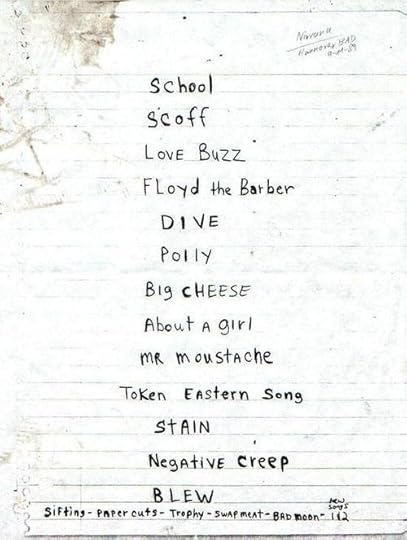 Nirvana
Hannover BAD
School
Scoff
Love Buzz
Floyd the Barber
DIVE
Polly
Big CHEESE
About A girl
MR moustache
Token Eastern Song
STAIN
Negative creep
BLEW
new
songs
Sifting - Paper cuts - Trophy - swap meat - BAD moon - 1&2